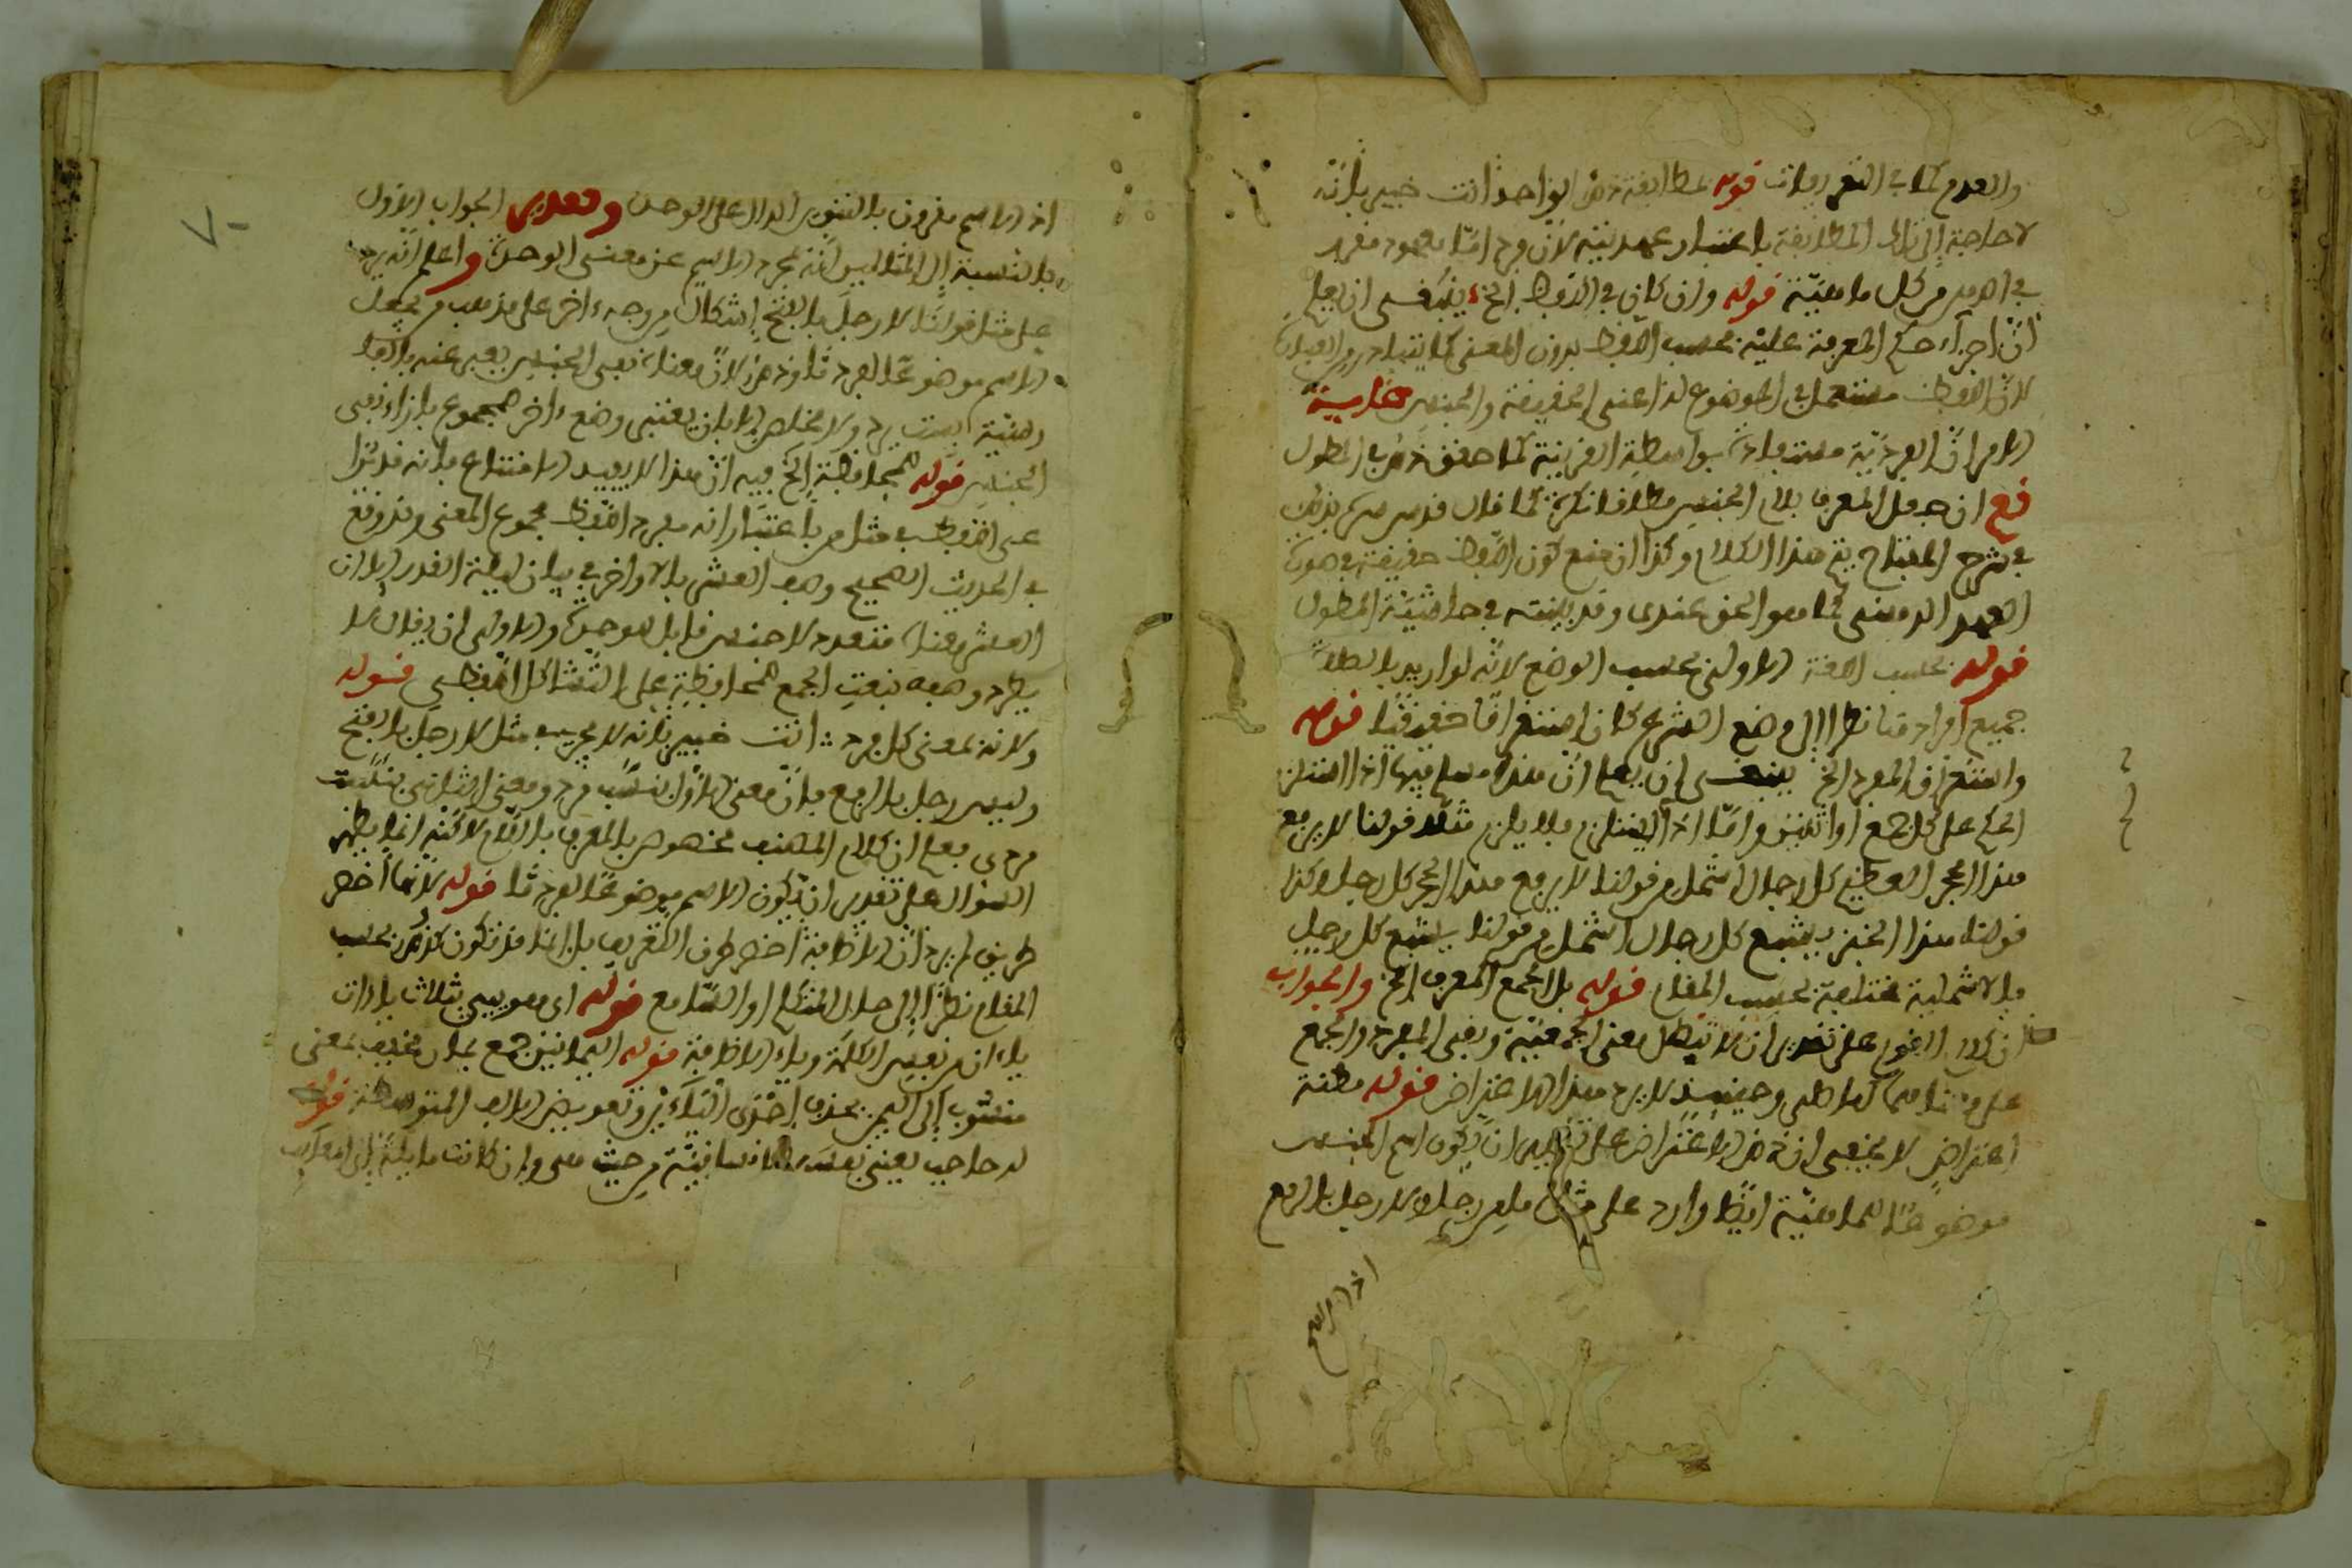 والعدم كما في التعريفات قوله مطابقة ذهن الواحد انت خبير بانه
لا حاجة الى تلك المطابقة باعتبار عهديته لان فردا ما معهود
في كل ماهية قوله وان كان في اللفظ الخ ينبغي ان يعلم
ان اجراء حكم المعرفة عليه بحسب اللفظ بدون المعنى كما يتبادر من العبارة
لان اللفظ مستعمل في الموضوع له اعنى الحقيقة والجنس
الامر ان الفردية مستفادة بواسطة القرينة كما حقق ذلك في المطول
نعم ان جعل المعرف بلام الجنس مطلقا نكرة كما قال قدس سره بذلك
في شرح المفتاح يتم هذا الكلام وكذا ان منع كون اللفظ حقيقة في صورة
العهد الذهني كما هو الحق عندى وقد بينته في حاشية المطول
قوله بحسب اللغة الاولى بحسب الوضع لانه لو اريد بالصلاة
جميع افرادها نظرا الى وضع الشرع كان استغراقا حقيقيا قوله
واستغراق المفرد الخ ينبغي ان يعلم ان هذا مسلم فيها اذا استلزم
الحكم على كل جمع او اثنين واما اذا لم يستلزم فلا يلزم مثلا قولنا لا يرفع
هذا الحجر العظيم كل رجال اشمل من قولنا لا يرفع هذا الحجر كل رجل وكذا
قولنا هذا الخبز يشبع كل رجال اشمل من قولنا يشبع كل رجل
فالاشملية مختلفة بحسب المقام قوله بل الجمع المعرف الخ والجواب
ان كلام القوم على تقدير ان لا تبطل معنى الجمعية وبقى المفرد والجمع
على معناهما كما ظن وحينئذ لا يرد هذا الاعتراض قوله مظنة
اعتراض لا يخفى ان هذا الاعتراض على تقدير ان يكون اسم الجنس
موضوعا للماهية ايضا وارد على مثال ما من رجل ولا رجل بالرفع
اذ الاسم
اذ الاسم مقرون بالتنوين الدال على الوحدة وتقدير الجواب الاول
بالنسبة الى المثالين انه يجرد الاسم عن معنى الوحدة واعلم انه يرد
على مثل قولنا لا رجل بالفتح اشكال من وجه اخر على مذهب من يجعل
الاسم موضوعا للفرد لان معناه نفي الجنس يعبر عنه بالفا
رسية نيست مرد ولا مخلص الا بان يعتبر وضع اخر للمجموع بازاء نفي
الجنس قوله للمحافظة الخ فيه ان هذا لا يفيد الامتناع فانه قد ترا
عى اللفظ في مثل من باعتبار انه مفرد اللفظ مجموع المعنى وقد وقع
في الحديث الصحيح وصف العشر بالاواخر في بيان ليلة القدر الا ان
العشر معناه متعدد لا جنس قابل للوحدة والاولى ان يقال لا
يطرد وصفه بنعت الجمع للمحافظة على التشاكل اللفظي قوله
ولانه بمعنى كل فرد : انت خبير بانه لا يجري في مثل لا رجل بالفتح
وليس رجل بالرفع فان معنى الاول نيست مرد ومعنى الثاني نيست
مردى فعلم ان كلام المصنف مخصوص بالمعرف باللام لاكنه انما يظهر
السؤال على تقدير ان يكون الاسم موضوعا للفرد قوله لانها اخصر
طريق لم يرد ان الاضافة اخصر طرف التعريف بل انها قد تكون كذلك بحسب
المقام نظرا الى حال المتكلم او السامع قوله اى مهويي بثلاث ياءات
ياء ان من نفس الكلمة وياء الاضافة قوله اليمانين جمع يمان مخفف بمعنى
منسوب الى اليمن بحذف احدى اليائين وتعويض الالف المتوسطة قوله
له حاجب يعنى نفسه الانسانية من حيث هي وان كانت مائلة الى